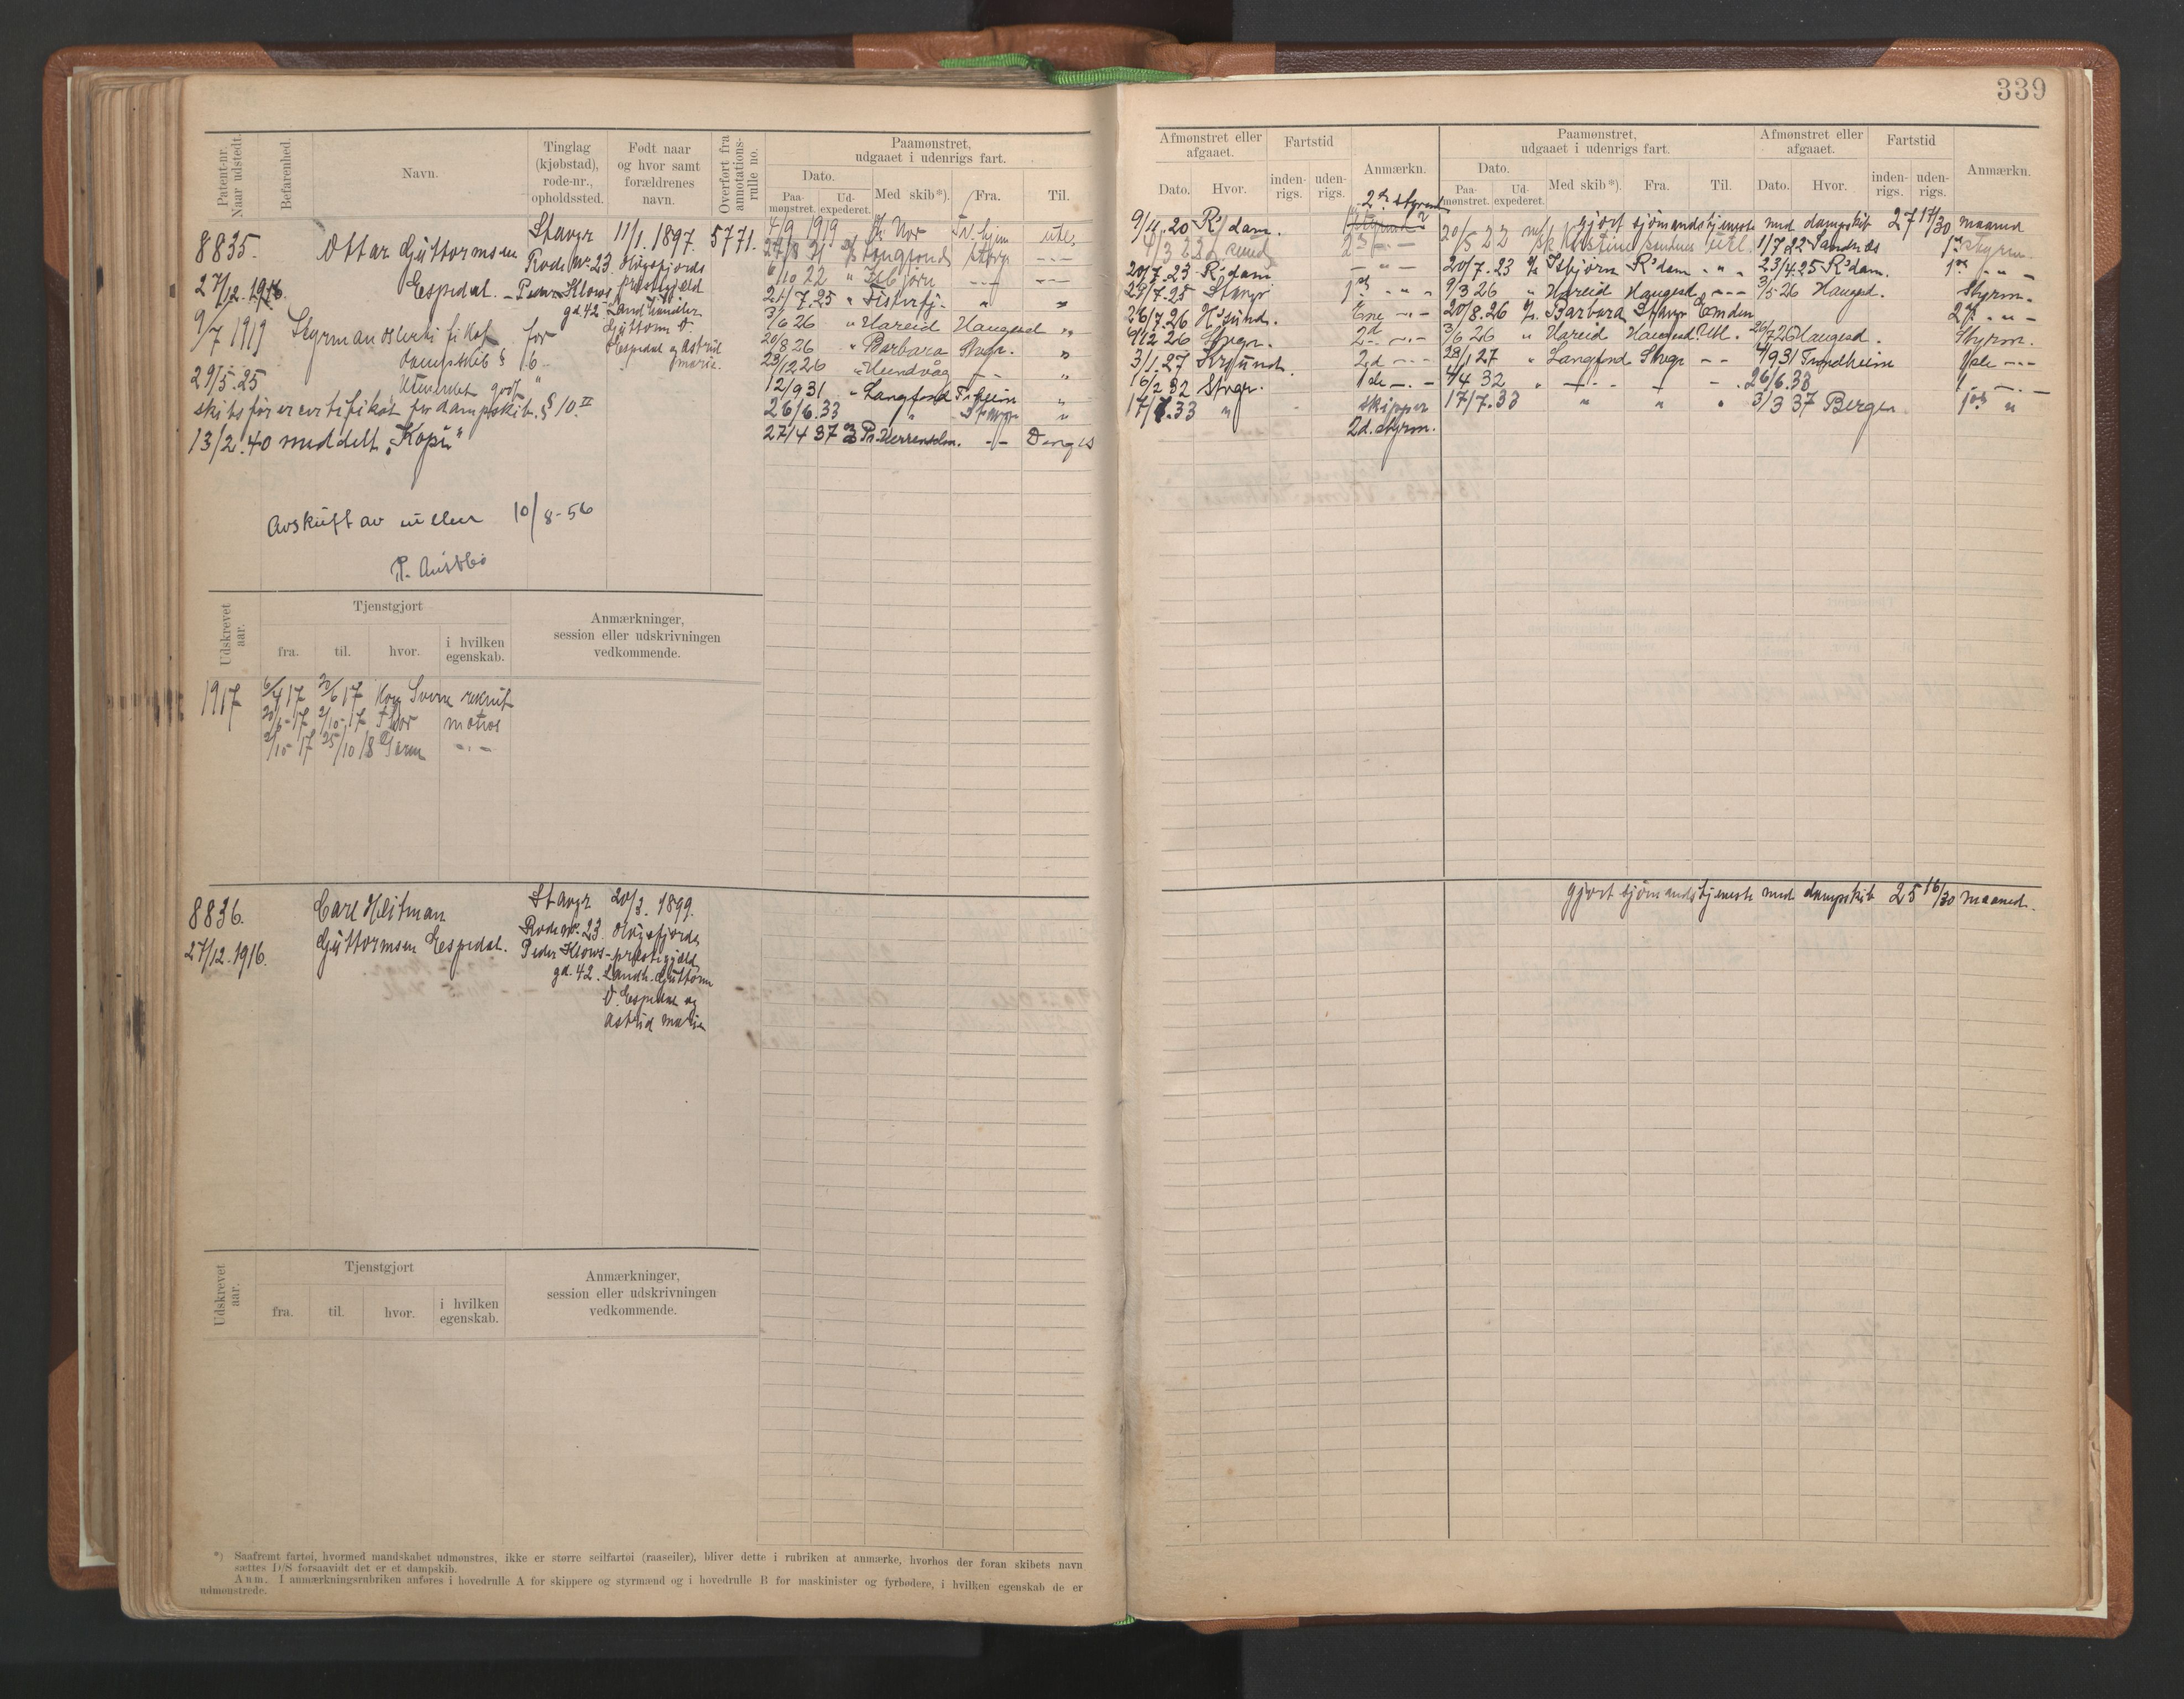 339
Patent-nr. Naar udstedt.
Befarenhed.
Navn.
Tinglag (kjøbstad), rode-nr., opholdssted.
Født naar og hvor samt forældrenes navn.
Overført fra annotations-rulle no.
Paamønstret, udgaaet i udenrigs fart.
Dato.
Paa-mønstret.
Ud-expederet.
Med skib*).
Fra.
Til.
Afmønstret eller afgaaet.
Dato.
Hvor.
Fartstid
inden-rigs.
uden-rigs.
Anmærkn.
Paamønstret, udgaaet i udenrigs fart.
Dato.
Paa-mønstret.
Ud-expederet.
Med skib*).
Fra.
Til.
Afmønstret eller afgaaet.
Dato.
Hvor.
Fartstid
inden-rigs.
uden-rigs.
Anmærkn.
8835.
27/12. 1916.
Ottar Guttormsen
Espedal.
Stavgr
Rode Nr. 23
Peder Klows
gd. 42.
11/1. 1897.
Høgsfjords
præstegjæld
Landhandler
Guttorm O.
Espedal og Astrid
Marie.
5771.
9/7 1919 Styrmandscertifikat for
dampskib § 6
29/5.25 Utvidet godt
skibsførercertifikat for dampskib. § 10.II
13/2.40 meddelt "Kopi"
Avskrift av rullen 10/8-56
P. Austbø
4/9 1919 Nor N. hjem ute,
24/8 21 Langfond Stavgr -"-
6/10 22 " Isbjørn -"- -"-
21/7.25 " Fisterfj. " "
3/6 26 " Hareid Haugesd "
20/8 26 " Barbara Stvgr. "
28/12 26 " Hundvåg -"- "
12/9 31 " Langfond Tr.heim "
26/6.33 " Stavgr "
27/4 37 -"- Dengis
9/11.20 R'dam. 2den styrmd
4/3 22
20/7.23 R'dam -"-
29/7.25 Stavgr 1ste " "
26/7.26 H'sund. Ene -"-
9/12 26 Stvgr. 2d -"-
3/1.27 Kr.sund. 2.d -"-
16/2 32 Stvgr. 1de -"-
17/7.33 " skipper
2d. styrm.
gjort sjömandstjeneste med dampskib 27 17/30 maaned
20/5 22 Kirstine Sandnes utl. 1/7.22 Sandnæs 1ste styrm.
20/7.23 Isbjørn R'dam -"- 23/4.25 R'dam. 1ste -"-
9/3 26 " Hareid Haugesd -"- 3/5 26 Haugesd. Styrm.
20/8.26 Barbara Stavgr Emden 2d. -"-
3/6 26 " Hareid Haugesd. Utl. 26/7 26 Haugesd. Styrm.
28/1 27 " Langfond Stvgr -"- 4/9 31 Trondheim 1ste -"-
4/4 32 " -"- -"- 26/6.33 1. -"-
17/7.33 " " " 3/3 37 Bergen 1ste "
Udskrevet aar.
Tjenstgjort
fra.
til.
hvor.
i hvilken egenskab.
Anmærkninger, session eller udskrivningen vedkommende.
1917 6/4 17 20/6 17 Kong Sverre rekrut
20/6-17 2/10-17 Thor matros
2/10-17 25/10 18 -"-
8836.
27/12.1916.
Carl Heitman
Guttormsen Espedal.
Stavgr
Rode nr. 23
Peder Klows-
gd. 42.
20/3. 1899.
Høgsfjords
præstegjæld
Landh. Guttorm
O. Espedal og
Astrid Marie
gjort sjömandstjeneste med dampskib 25 16/30 maaned.
Udskrevet aar.
Tjenstgjort
fra.
til.
hvor.
i hvilken egenskab.
Anmærkninger, session eller udskrivningen vedkommende.
*) Saafremt fartøi, hvormed mandskabet udmønstres, ikke er større seilfartøi (raaseiler), bliver dette i rubriken at anmærke, hvorhos der foran skibets navn
sættes D/S forsaavidt det er et dampskib.
Anm. I anmærkningsrubriken anføres i hovedrulle A for skippere og styrmænd og i hovedrulle B for maskinister og fyrbødere, i hvilken egenskab de er
udmønstrede.